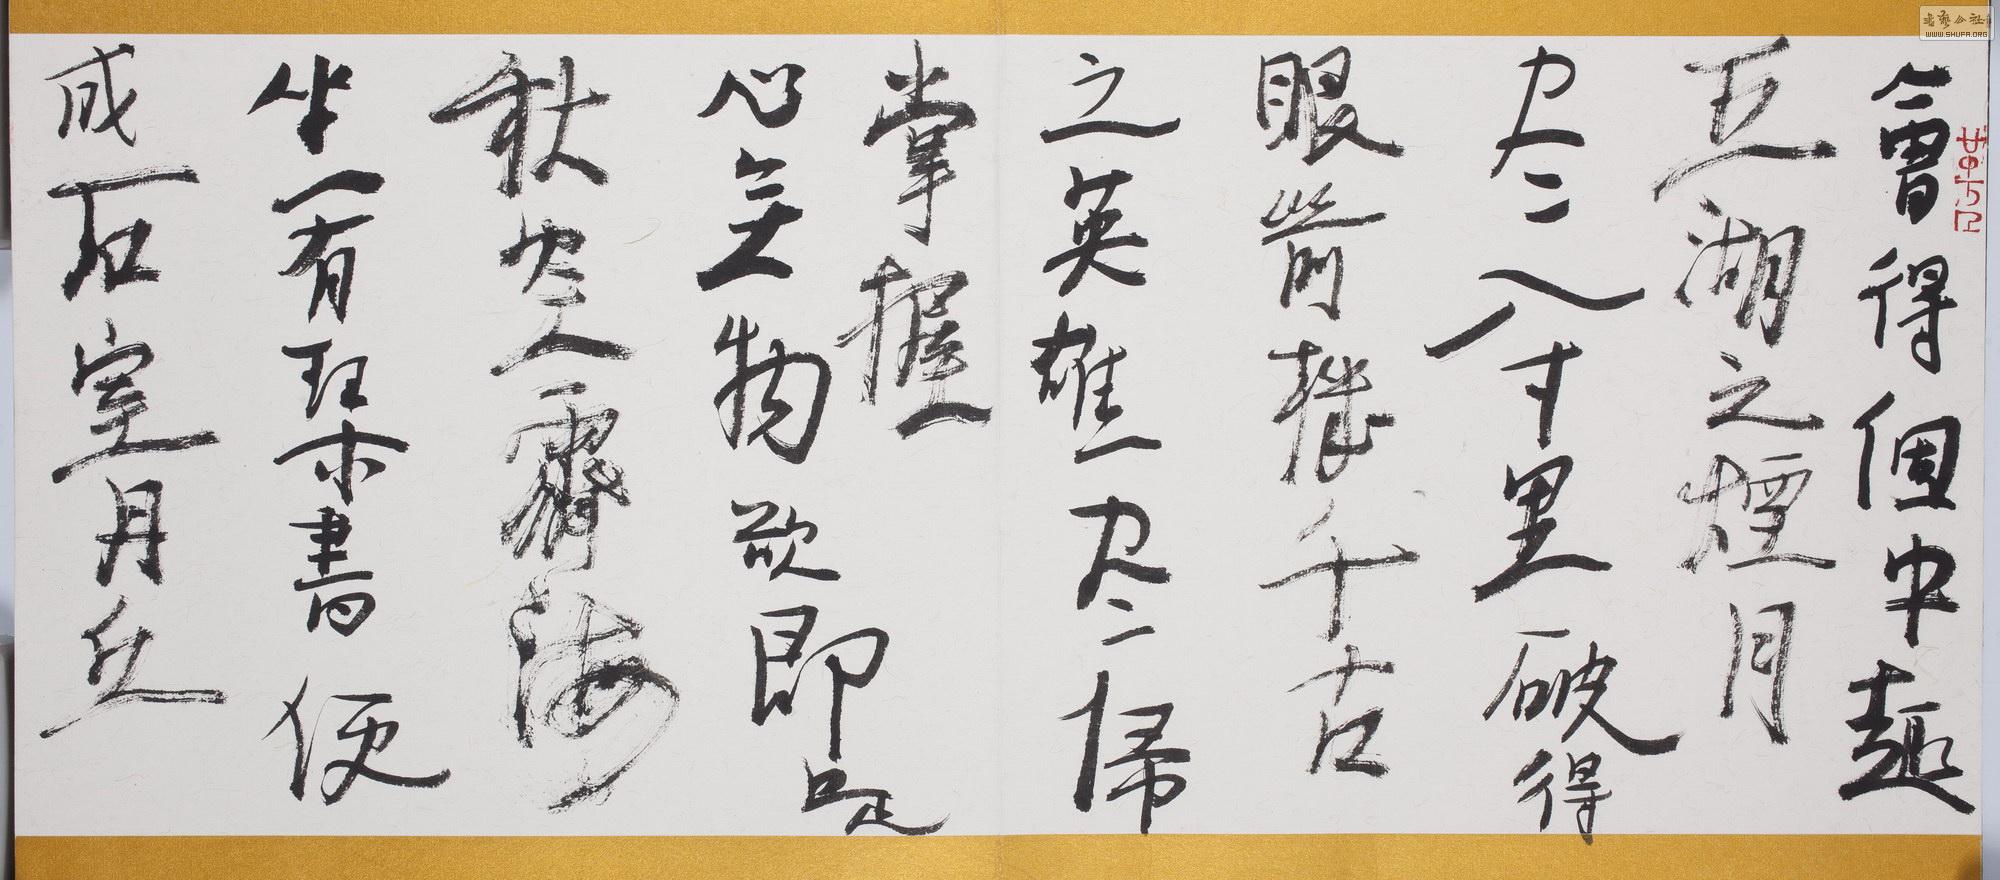 會得個中趣
五湖之煙月
尽入寸里破得
眼前機千古
之英雄尽歸
掌握
心無物欲即是
秋空霽海
坐有琴書便
成石室丹丘
書藝公社
WWW.SHUFA.ORG